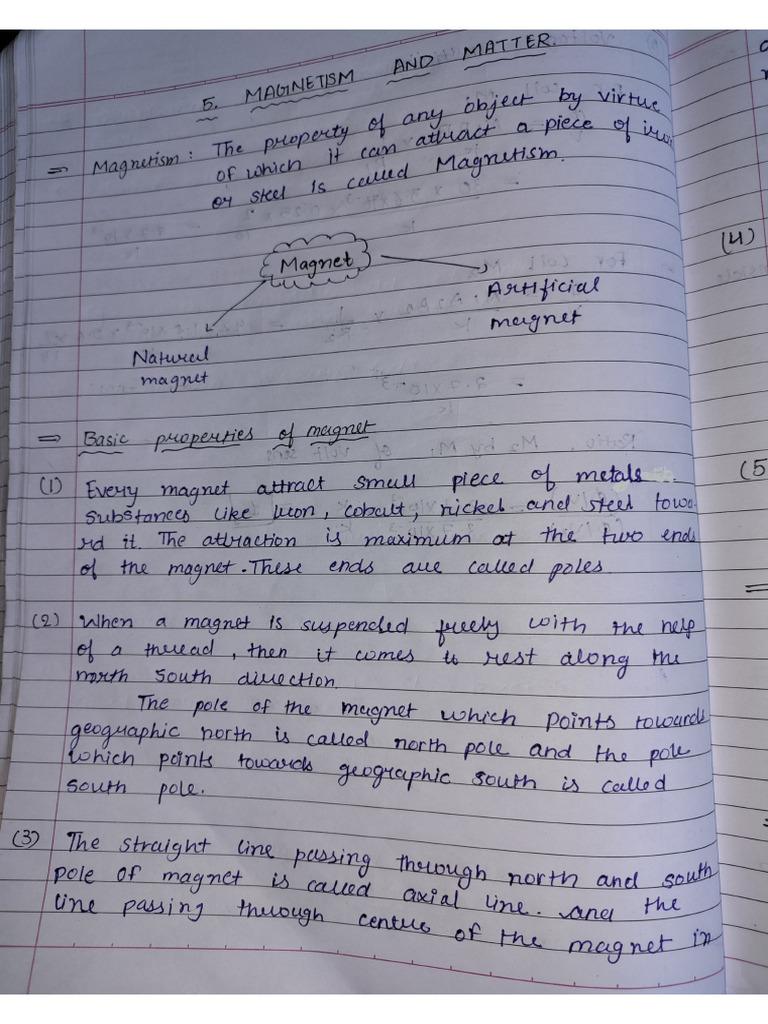 5. MAGNETISM AND MATTER.
⇒ Magnetism : The property of any object by virtue
of which it can attract a piece of iron
or steel is called Magnetism.
Magnet
Artificial
magnet
Natural
magnet
⇒ Basic properties of magnet
(1) Every magnet attract small piece of metals
substances like iron, cobalt, nickel and steel towa
rd it. The attraction is maximum at the two ends
of the magnet. These ends are called poles
(2) When a magnet is suspended freely with the help
of a thread, then it comes to rest along the
north south direction.
The pole of the magnet which points towards
geographic north is called north pole and the pole
which points towards geographic south is called
south pole.
(3) The straight line passing through north and south
pole of magnet is called axial line. and the
line passing through centre of the magnet in
(4)
(5